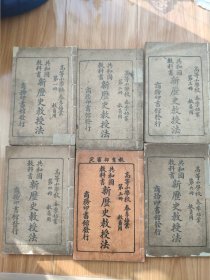 高等小學校 春季始業
教員用
共和國
教科書
新歷史教授法
商務印書館發行
高等小學校 春季始業
教員用
共和國
教科書
新歷史教授法
商務印書館發行
高等小學校 春季始業
教員用
共和國
教科書
新歷史教授法
商務印書館發行
高等小學校 春季始業
教員用
共和國
教科書
新歷史教授法
商務印書館發行
教育部審定
高等小學校 春季始業
教員用
共和國
教科書
新歷史教授法
商務印書館發行
高等小學校 春季始業
教員用
共和國
教科書
新歷史教授法
商務印書館發行